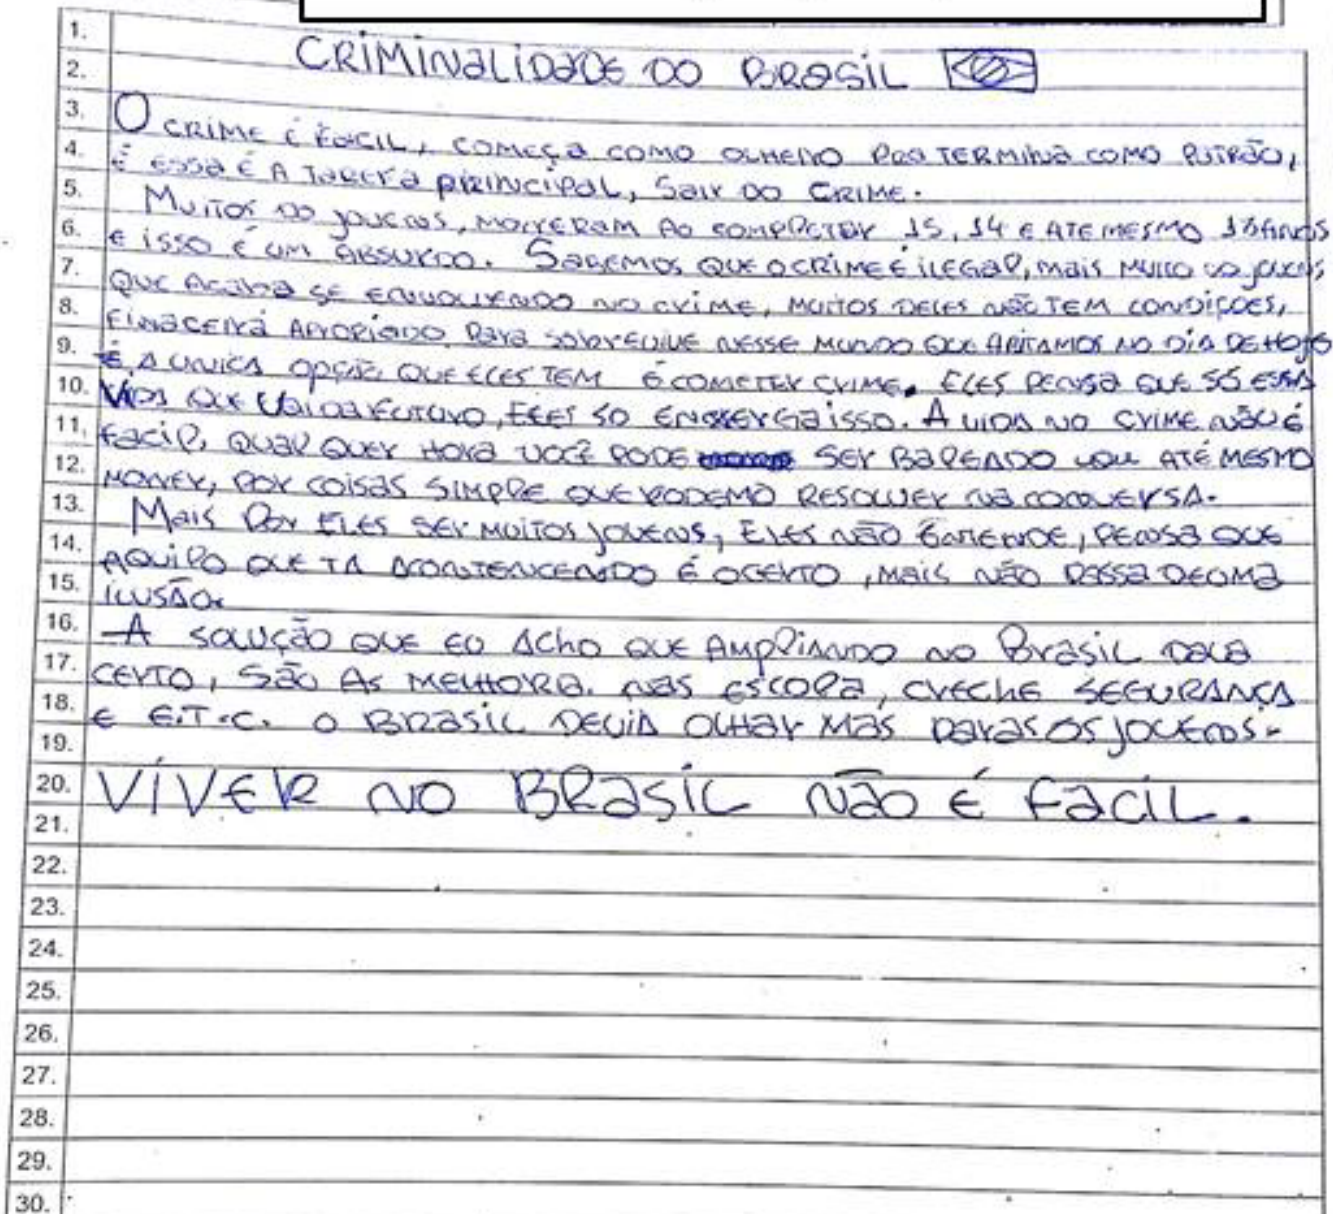 1.
CRIMINALIDADE DO BRASIL
2.
3. O CRIME É FACIL, COMEÇA COMO OLHEIRO PRA TERMINA COMO PATRÃO,
4. É ESSA É A TAREFA PRINCIPAL, SAIR DO CRIME.
5. MUITOS DO JOVENS, MORRERAM AO COMPLETAR 15, 14 E ATE MESMO ANOS
6. E ISSO É UM ABSURDO. SABEMOS QUE O CRIME É ILEGAL, MAIS MUITO DO JOVENS,
7. QUE ACABA SE ENVOLVENDO NO CRIME, MUITOS DELES NÃO TEM CONDIÇOES,
8. FINACEIRA APROPIADO PARA SOBREVIVE NESSE MUNDO QUE ABITAMOS NO DIA DE HOJE
9. É A UNICA OPÇÃO QUE ELES TEM É COMETER CRIME. ELES PENSA QUE SÓ ESSA
10. VIDA QUE VAI DA FUTURO, ELES SO ENXERGA ISSO. A VIDA NO CRIME NÃO É
11. FACIL, QUALQUER HORA VOCÊ PODE SER BALEADO OU ATÉ MESMO
12. MORRER, POR COISAS SIMPLE QUE PODEMO RESOLVER NA CONVERSA.
13. MAIS POR ELES SER MUITOS JOVENS, ELES NÃO ENTENDE, PENSA QUE
14. AQUILO QUE TA ACONTENCENDO É O CERTO, MAIS NÃO PASSA DE UMA
15. ILUSÃO.
16. A SOLUÇÃO QUE EU ACHO QUE AMPLIANDO NO BRASIL DARA
17. CERTO, SÃO AS MELHORA. NAS ESCOLA, CRECHE SEGURANÇA
18. E E.T.C. O BRASIL DEVIA OLHAR MAS PARAS OS JOVENS.
19.
20. VÍVER NO BRASIL NÃO É FACIL.
21.
22.
23.
24.
25.
26.
27.
28.
29.
30.